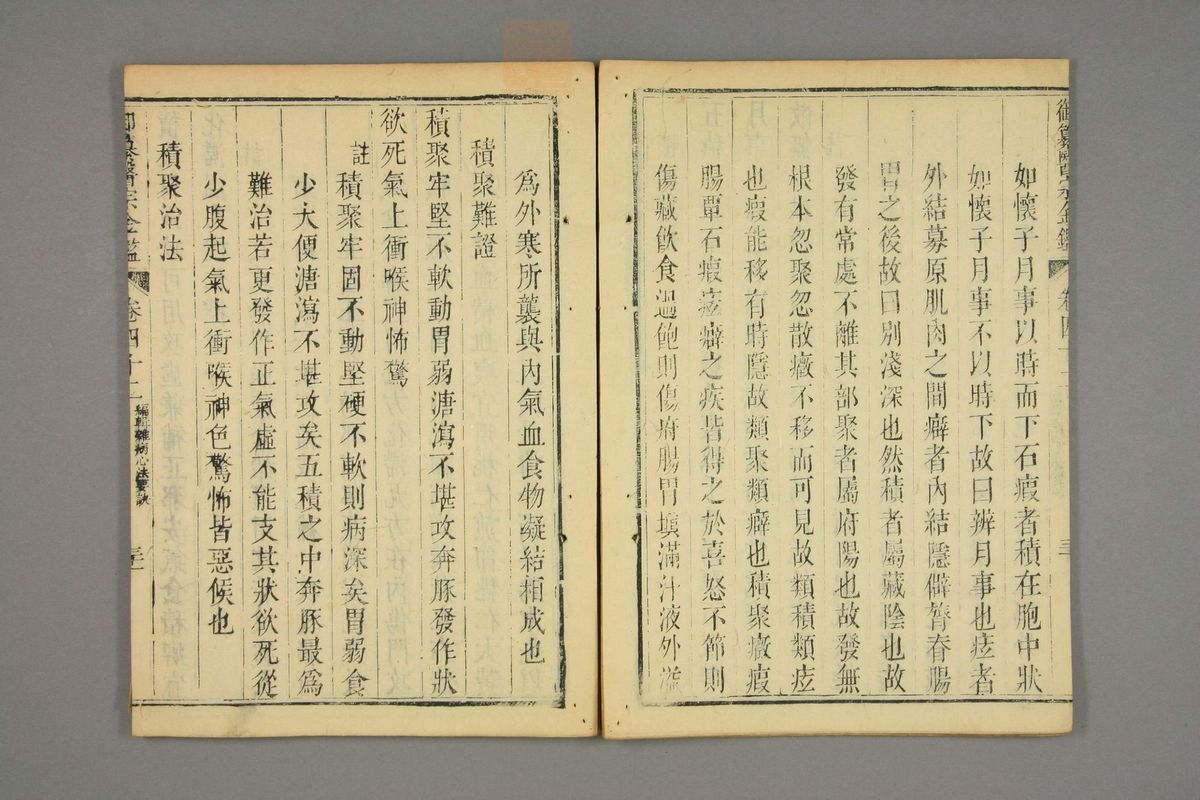 御纂醫宗金鑑 卷四十二 三十
如懷子月事以時而下石瘕者積在胞中狀
如懷子月事不以時下故曰辨月事也痃者
外結募原肌肉之間癖者內結隱僻膂脊腸
胃之後故曰別淺深也然積者屬藏陰也故
發有常處不離其部聚者屬府陽也故發無
根本忽聚忽散癥不移而可見故類積類痃
也瘕能移有時隱故類聚類癖也積聚癥瘕
腸覃石瘕痃癖之疾皆得之於喜怒不節則
傷藏飲食過飽則傷府腸胃塡滿汁液外溢
爲外寒所襲與內氣血食物凝結相成也
積聚難證
積聚牢堅不軟動胃弱溏瀉不堪攻奔豚發作狀
欲死氣上衝喉神怖驚
註 積聚牢固不動堅硬不軟則病深矣胃弱食
少大便溏瀉不堪攻矣五積之中奔豚最爲
難治若更發作正氣虛不能支其狀欲死從
少腹起氣上衝喉神色驚怖皆惡候也
積聚治法
御纂醫宗金鑑 卷四十二 編輯雜病心法要訣 三十一